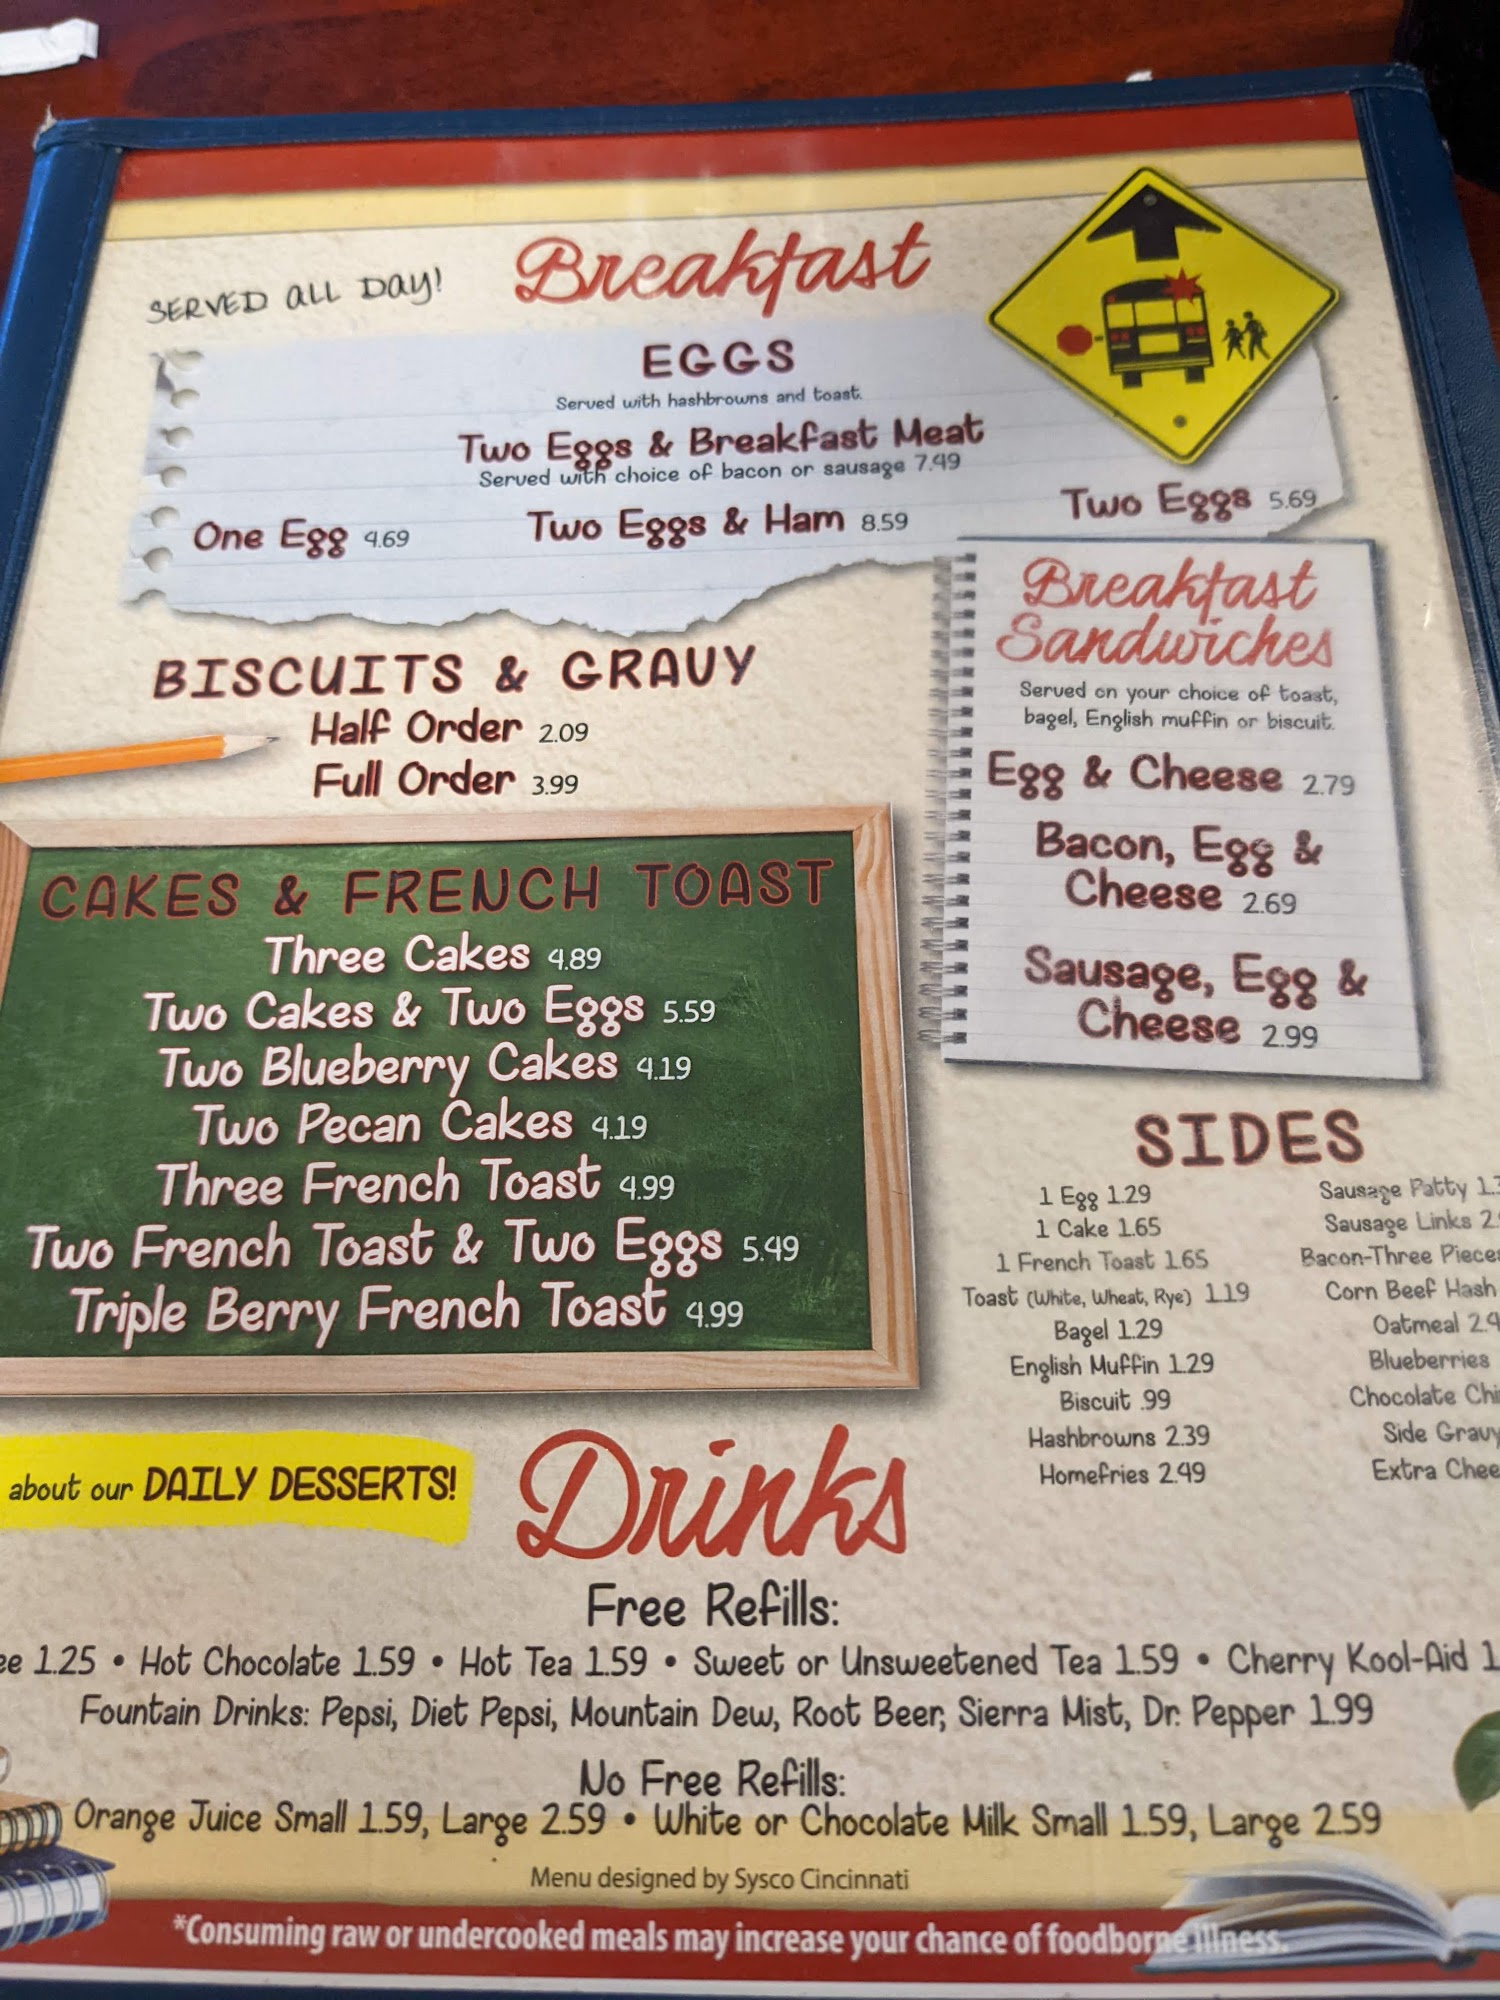 SERVED ALL DAY!
Breakfast
EGGS
Served with hashbrowns and toast.
Two Eggs & Breakfast Meat
Served with choice of bacon or sausage 7.49
One Egg 4.69
Two Eggs & Ham 8.59
Two Eggs 5.69
BISCUITS & GRAVY
Half Order 2.09
Full Order 3.99
Breakfast
Sandwiches
Served on your choice of toast,
bagel, English muffin or biscuit.
Egg & Cheese 2.79
Bacon, Egg &
Cheese 2.69
Sausage, Egg &
Cheese 2.99
CAKES & FRENCH TOAST
Three Cakes 4.89
Two Cakes & Two Eggs 5.59
Two Blueberry Cakes 4.19
Two Pecan Cakes 4.19
Three French Toast 4.99
Two French Toast & Two Eggs 5.49
Triple Berry French Toast 4.99
SIDES
1 Egg 1.29
1 Cake 1.65
1 French Toast 1.65
Toast (White, Wheat, Rye) 1.19
Bagel 1.29
English Muffin 1.29
Biscuit .99
Hashbrowns 2.39
Homefries 2.49
Sausage Patty
Sausage Links
Bacon-Three
Corn Beef Hash
Oatmeal
Blueberries
Chocolate
Side Gravy
Extra
about our DAILY DESSERTS!
Drinks
Free Refills:
1.25 • Hot Chocolate 1.59 • Hot Tea 1.59 • Sweet or Unsweetened Tea 1.59 • Cherry Kool-Aid
Fountain Drinks: Pepsi, Diet Pepsi, Mountain Dew, Root Beer, Sierra Mist, Dr. Pepper 1.99
No Free Refills:
Orange Juice Small 1.59, Large 2.59 • White or Chocolate Milk Small 1.59, Large 2.59
Menu designed by Sysco Cincinnati
*Consuming raw or undercooked meals may increase your chance of foodborne illness.